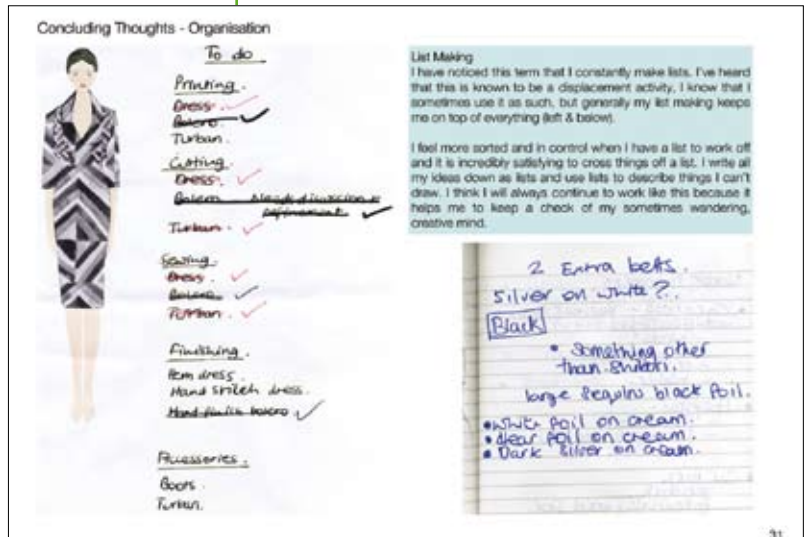 Concluding Thoughts - Organisation
To do
Printing.
Dress.
Bolero
Turban.
Cutting.
Dress.
Bolero
Turban.
Sewing.
Dress.
Bolero.
Turban.
Finishing.
Hem dress.
Hand stitch dress.
Hand finish bolero
Accessories.
Boots.
Turban.
List Making
I have noticed this term that I constantly make lists. I've heard
that this is known to be a displacement activity, I know that I
sometimes use it as such, but generally my list making keeps
me on top of everything (left & below).
I feel more sorted and in control when I have a list to work off
and it is incredibly satisfying to cross things off a list. I write all
my ideas down as lists and use lists to describe things I can't
draw. I think I will always continue to work like this because it
helps me to keep a check of my sometimes wandering,
creative mind.
2 Extra belts.
Silver on white?.
Black
• Something other
than Shibori.
large Sequins black foil.
• White foil on cream.
• Clear foil on cream.
• Dark Silver on cream.